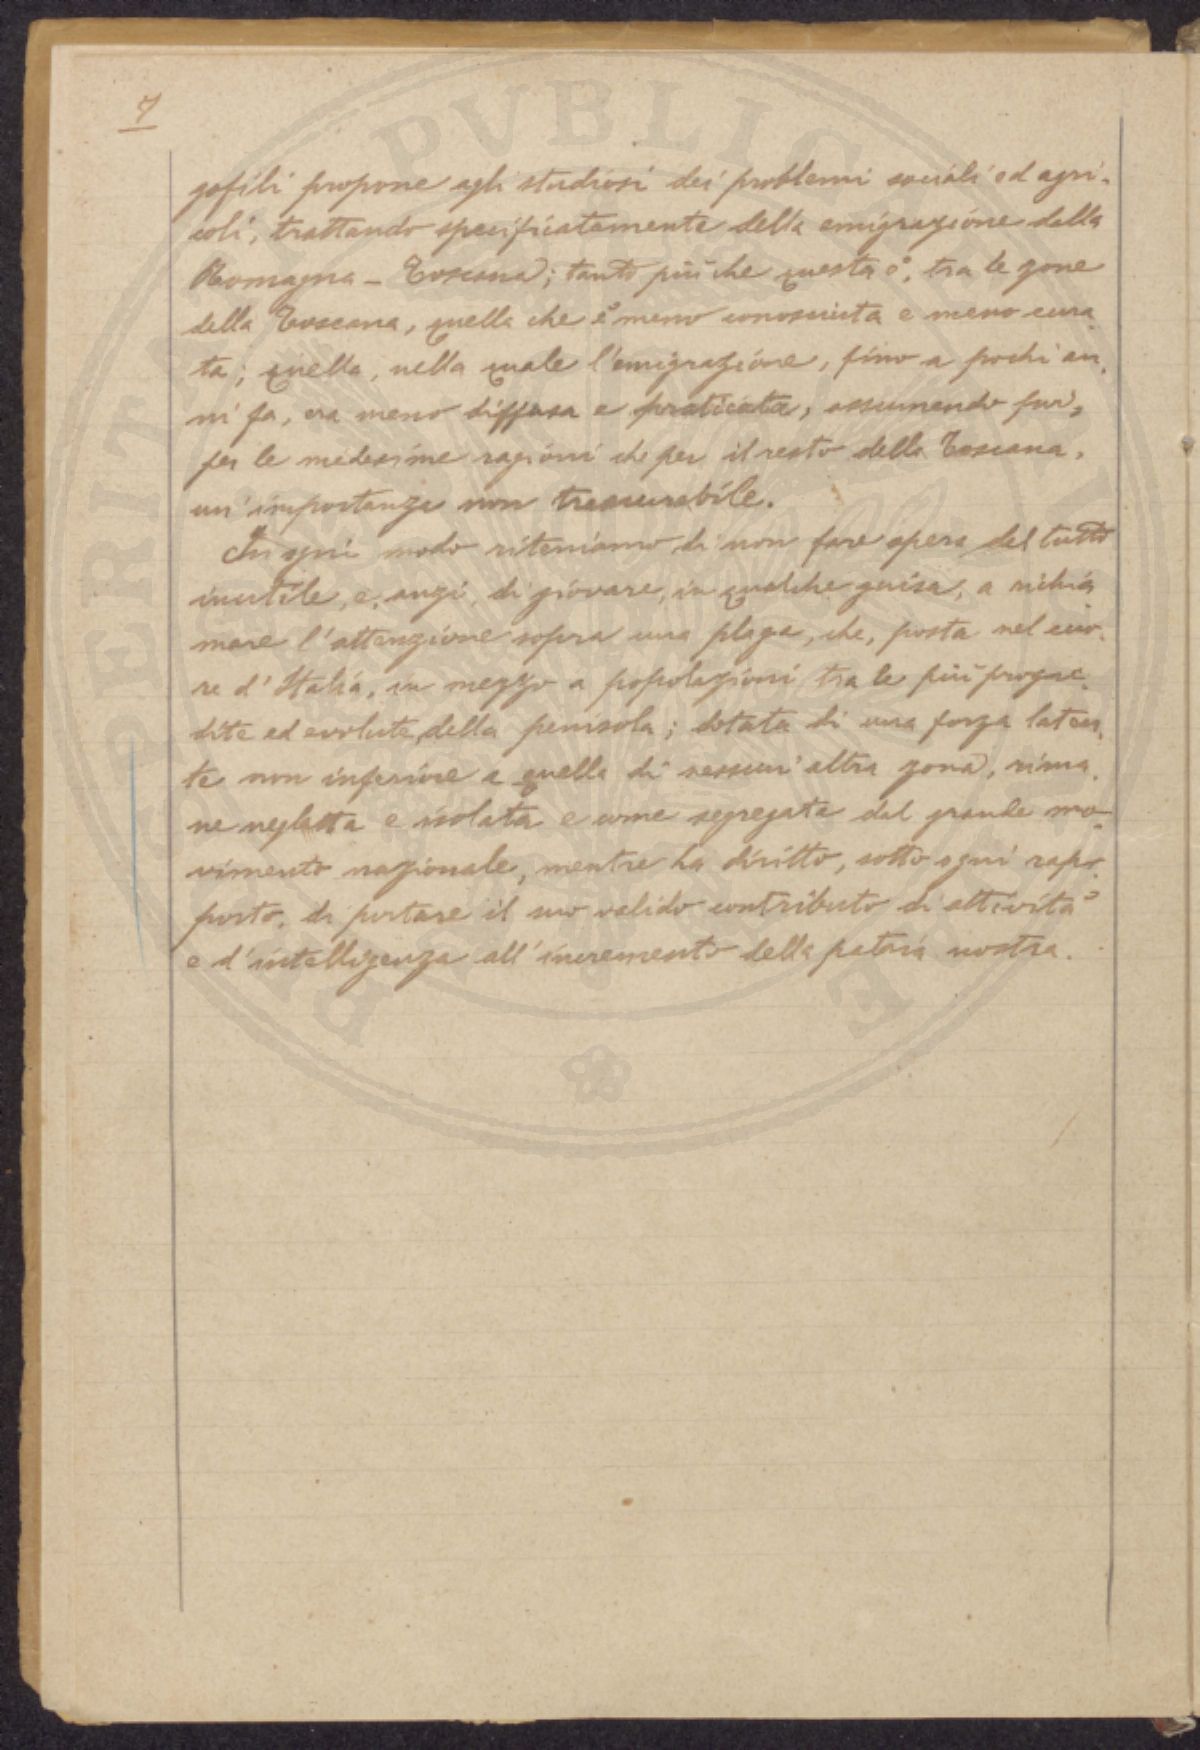 7
gofili propone agli studiosi dei problemi sociali ed agri-
coli, trattando specificatamente della emigrazione dalla
Romagna - Toscana; tanto più che questa è, tra le zone
della Toscana, quella che è meno conosciuta e meno cura-
ta; quella, nella quale l'emigrazione, fino a pochi an-
ni fa, era meno diffusa e praticata, assumendo poi,
per le medesime ragioni che per il resto della Toscana,
un'importanza non trascurabile.
In ogni modo riteniamo di non fare opera del tutto
inutile, e, anzi, di giovare, in qualche guisa, a richia-
mare l'attenzione sopra una plaga, che, posta nel cuo-
re d'Italia, in mezzo a popolazioni tra le più progre-
dite ed evolute della penisola; dotata di una forza laten-
te non inferiore a quella di nessun'altra zona, rima-
ne negletta e isolata e come segregata dal grande mo-
vimento nazionale, mentre ha diritto, sotto ogni rap-
porto, di portare il suo valido contributo di attività
e d'intelligenza all'incremento della patria nostra.
PERITIA PVBLICA